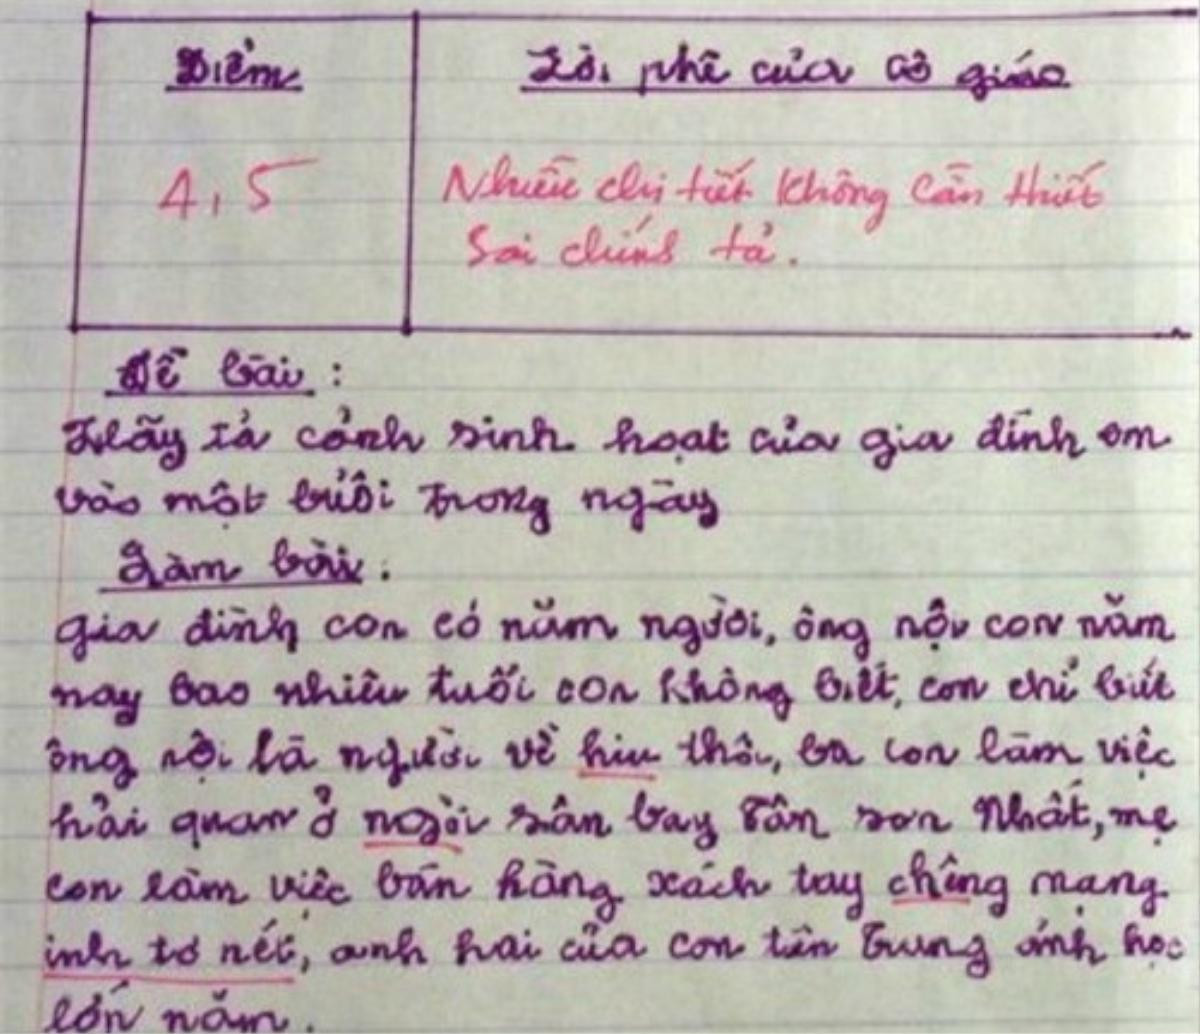 Điểm
Lời phê của cô giáo
4,5
Nhiều chi tiết không cần thiết
Sai chính tả.
Đề bài:
Hãy tả cảnh sinh hoạt của gia đình em
vào một buổi trong ngày
Làm bài:
gia đình con có năm người, ông nội con năm
nay bao nhiêu tuổi con không biết, con chỉ biết
ông nội là người về hiu thôi, ba con làm việc
hải quan ở ngòi sân bay Tân sơn Nhất, mẹ
con làm việc bán hàng xách tay chêng mạng
inh tơ nét, anh hai của con tên Trung ánh học
lớn năm.